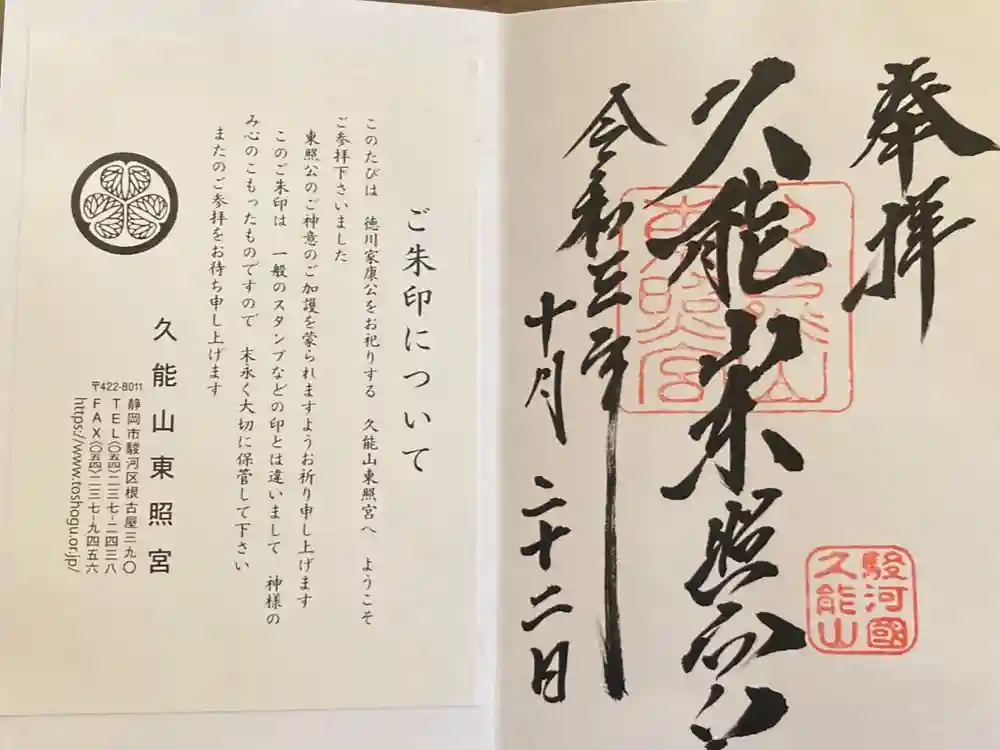 奉拝
久能山東照宮
令和三年
十月二十二日
久能山
東照宮
駿河國
久能山
ご朱印について
このたびは 徳川家康公をお祀りする 久能山東照宮へ ようこそ
ご参拝下さいました
東照公のご神意のご加護を蒙られますようお祈り申し上げます
このご朱印は 一般のスタンプなどの印とは違いまして 神様の
み心のこもったものですので 末永く大切に保管して下さい
またのご参拝をお待ち申し上げます
久能山東照宮
〒422-8011
静岡市駿河区根古屋三九〇
TEL(〇五四)二三七-二四三八
FAX(〇五四)二三七-九四五六
https://www.toshogu.or.jp/